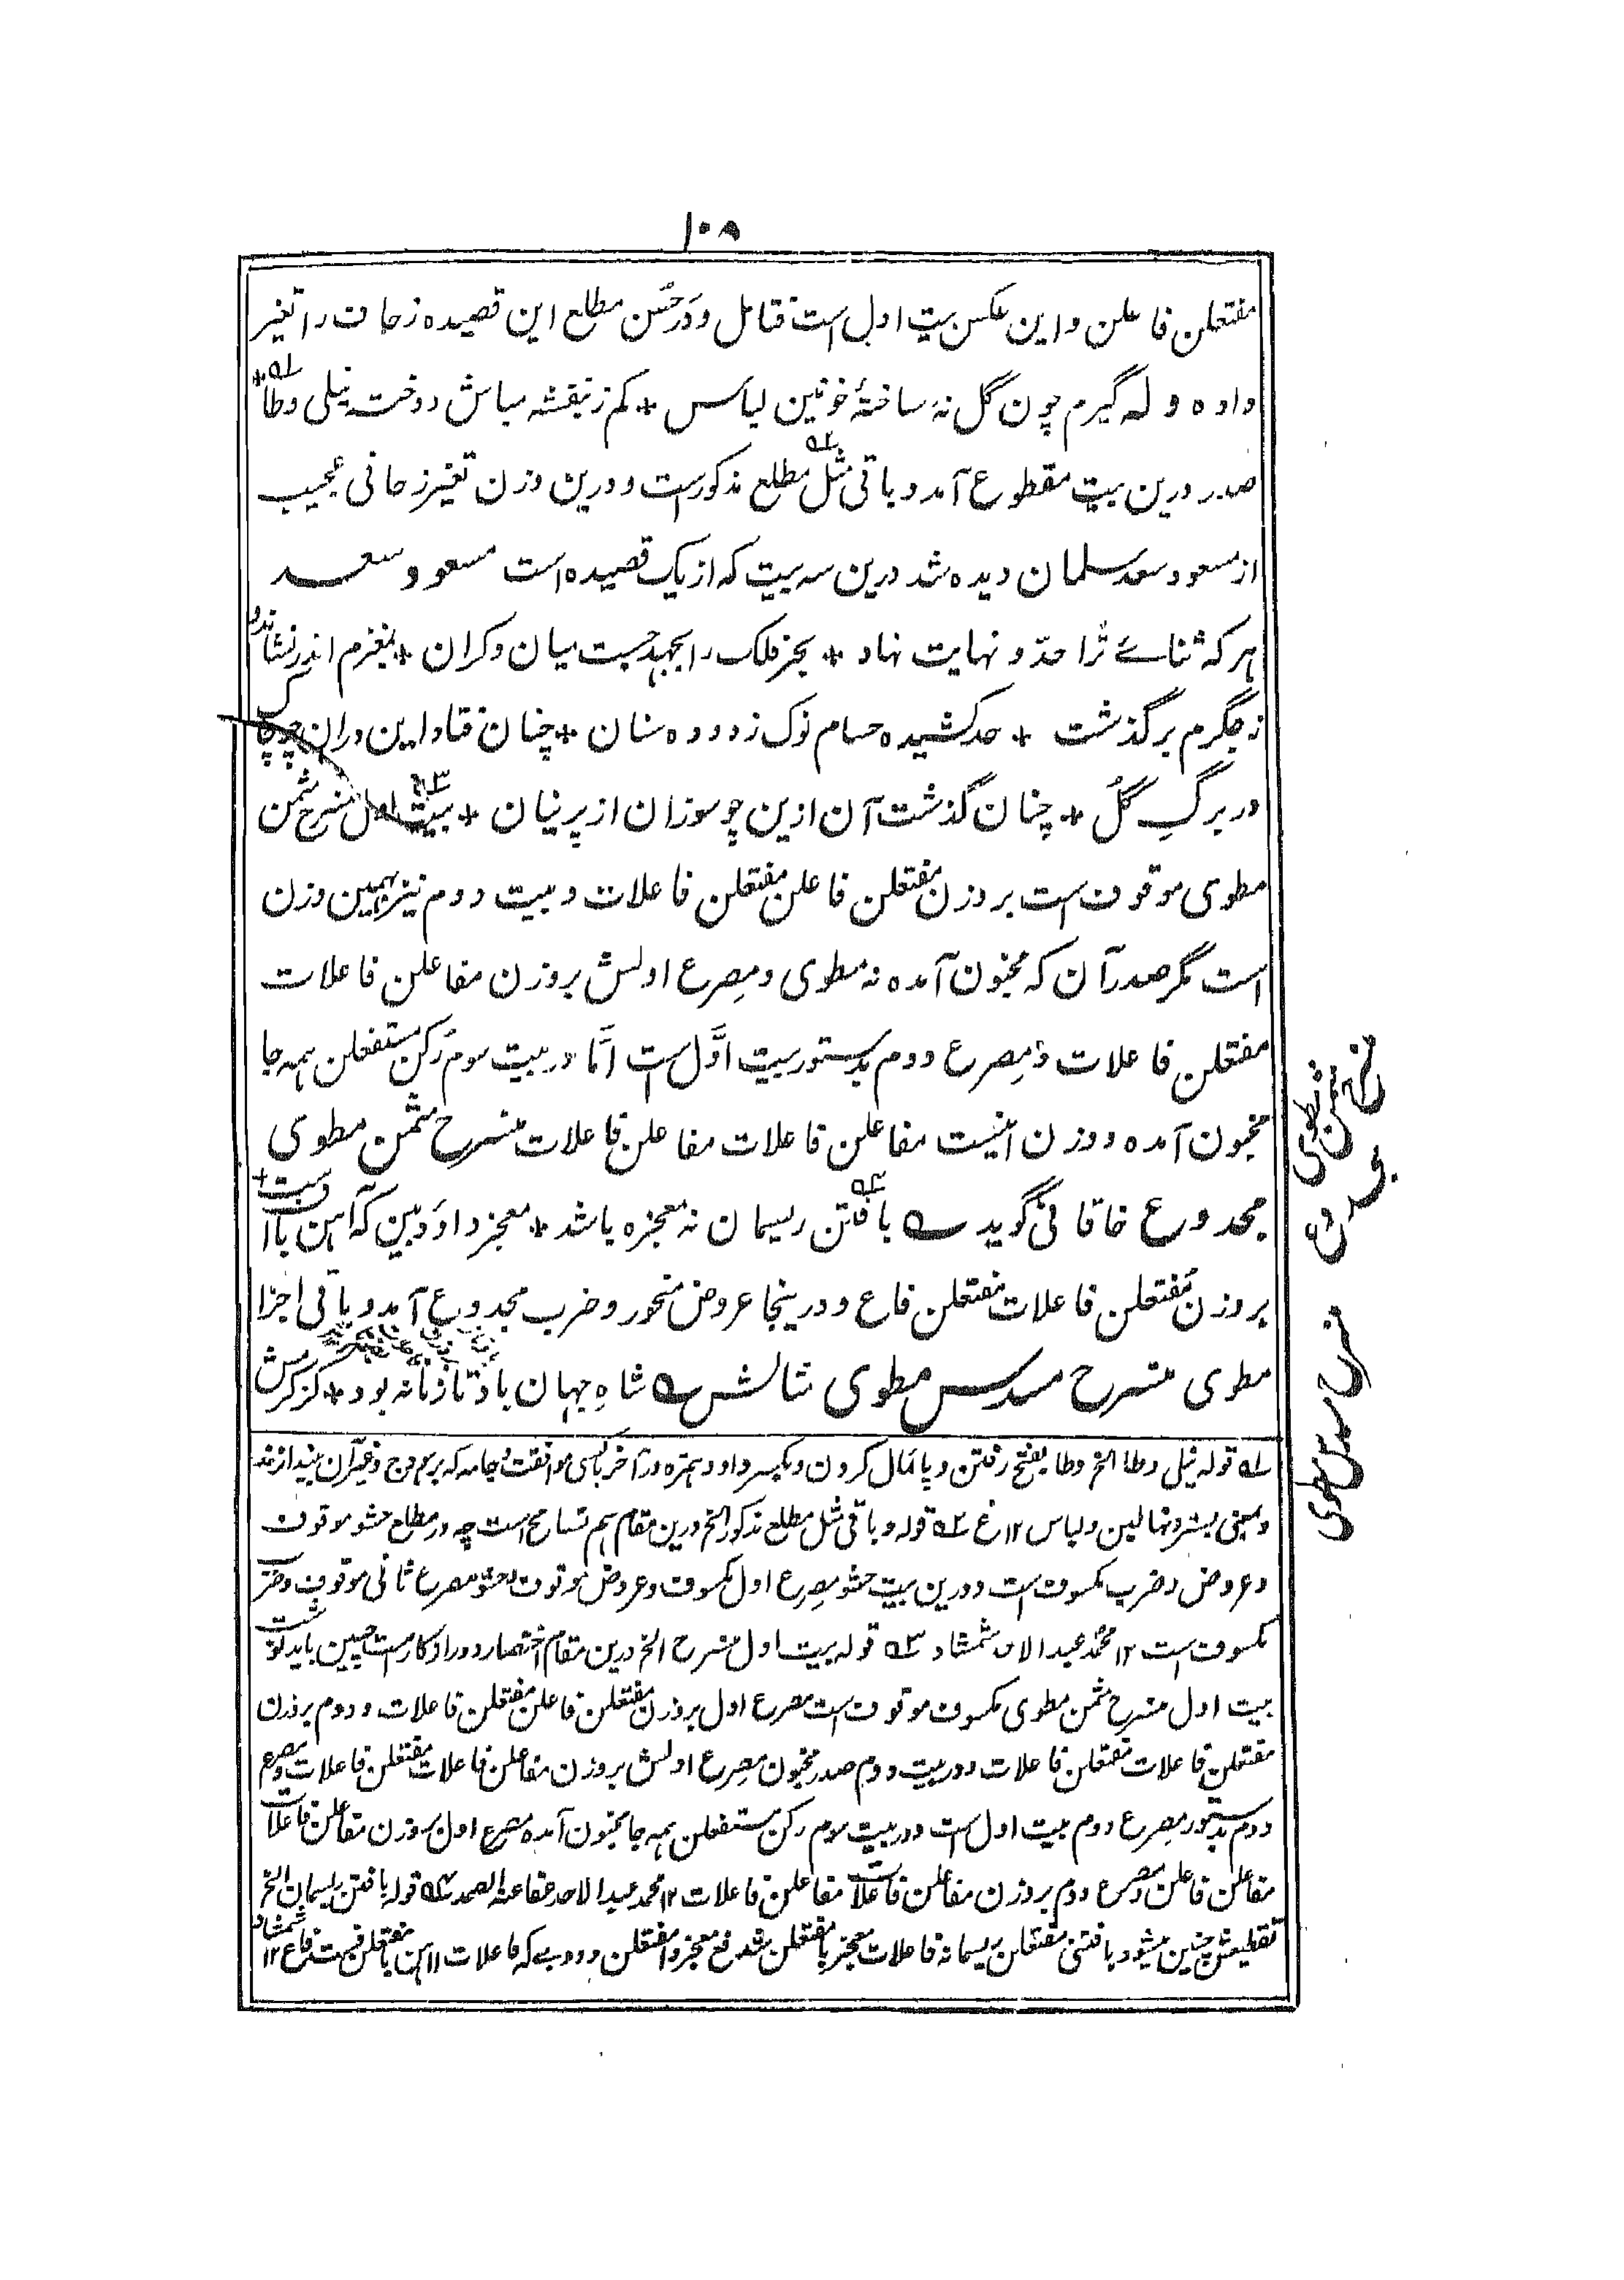 ۱۰۹
مفتعلن فاعلن و این عکس بیت اول است قتامل و در حسن مطلع این قصیده زحاف را تغیر
داده وله گیرم چون گل نهٔ ساختهٔ خونین لباس * کم ز بنفشه مباش دوخت نیلی وطا * له
صدر درین بیت مقطوع آمد و باقی مثل مطلع مذکورست و درین وزن تغیر زحافی عجیب
از مسعود سعد سلمان دیده شد درین سه بیت که از یک قصیده است مسعود سعد
هر که ثنائے ترا حدّ و نهایت نهاد * بجز فلک را بجهد جست میان و کران * بمغزم اندر نشاند و
ز جگرم بر گذشت * حد کشیده حسام نوک زدوده سنان * چنان فتاد این دران چو چاک
در برگِ گل * چنان گذشت آن ازین چو سوزان از پرنیان * بیت اول منسرح مثمن
مطوی موقوف است بر وزن مفتعلن فاعلن مفتعلن فاعلات و بیت دوم نیز بهمین وزن
است مگر صدر آن که مخبون آمده نه مطوی و مصرع اولش بروزن مفاعلن فاعلات
مفتعلن فاعلات و مصرع دوم بدستور بیت اوّل است امّا در بیت سوم رکن مستفعلن همه جا
مخبون آمده و وزن اینست مفاعلن فاعلات مفاعلن فاعلات منسرح مثمن مطوی
مجدوع خاقانی گوید ؎ بافتن ریسمان نه معجزه باشد * معجز داؤد بین که آهن بافت ست *
بروزن مفتعلن فاعلات مفتعلن فاع و درینجا عروض منحور و ضرب مجدوع آمد و باقی اجزا
مطوی منسرح مسدس مطوی مثالش ؎ شاهِ جهان باد تا زمانه بود * کز کرمش
له قوله نیلی وطا الخ وطا بفتح رفتن و پائمال کردن و بکسر واو و همزه در آخر بمعنی موافقت و جامه که بر هودج و غیر آن بیندازند
و بمعنی بستر و نهالین و لباس ۱۲ غ ۲ه قوله و باقی مثل مطلع مذکور الخ درین مقام هم تسامح است چه در مطلع حشو موقوف
و عروض و ضرب مکسوف است و درین بیت حشو مصرع اول مکسوف و عروض موقوف و حشو مصرع ثانی موقوف و ضرب
مکسوف است ۱۲ محمد عبدالاحد شمشاد ۳ه قوله بیت اول منسرح الخ درین مقام اختصار دور از کار است چنین باید گفت
بیت اول منسرح مثمن مطوی مکسوف موقوف است مصرع اول بروزن مفتعلن فاعلن مفتعلن فاعلات و دوم بروزن
مفتعلن فاعلات مفتعلن فاعلات و در بیت دوم صدر مخبون مصرع اولش بروزن مفاعلن فاعلات مفتعلن فاعلات و مصرع
دوم بدستور مصرع دوم بیت اول است و در بیت سوم رکن مستفعلن همه جا مخبون آمده مصرع اول بروزن مفاعلن فاعلات
مفاعلن فاعلن و مصرع دوم بروزن مفاعلن فاعلات مفاعلن فاعلات ۱۲ محمد عبدالاحد عفا عنه الصمد ۴ه قوله بافتن ریسمان الخ
تقطیعش چنین میشود بافتنی مفتعلن ریسمانه فاعلات معجز با مفتعلن شد فع معجز دا مفتعلن وود بے که فاعلات اا هن با مفتعلن فست فاع ۱۲ شمشاد
منسرح مثمن مطوی
مجدوع
منسرح مسدس مطوی